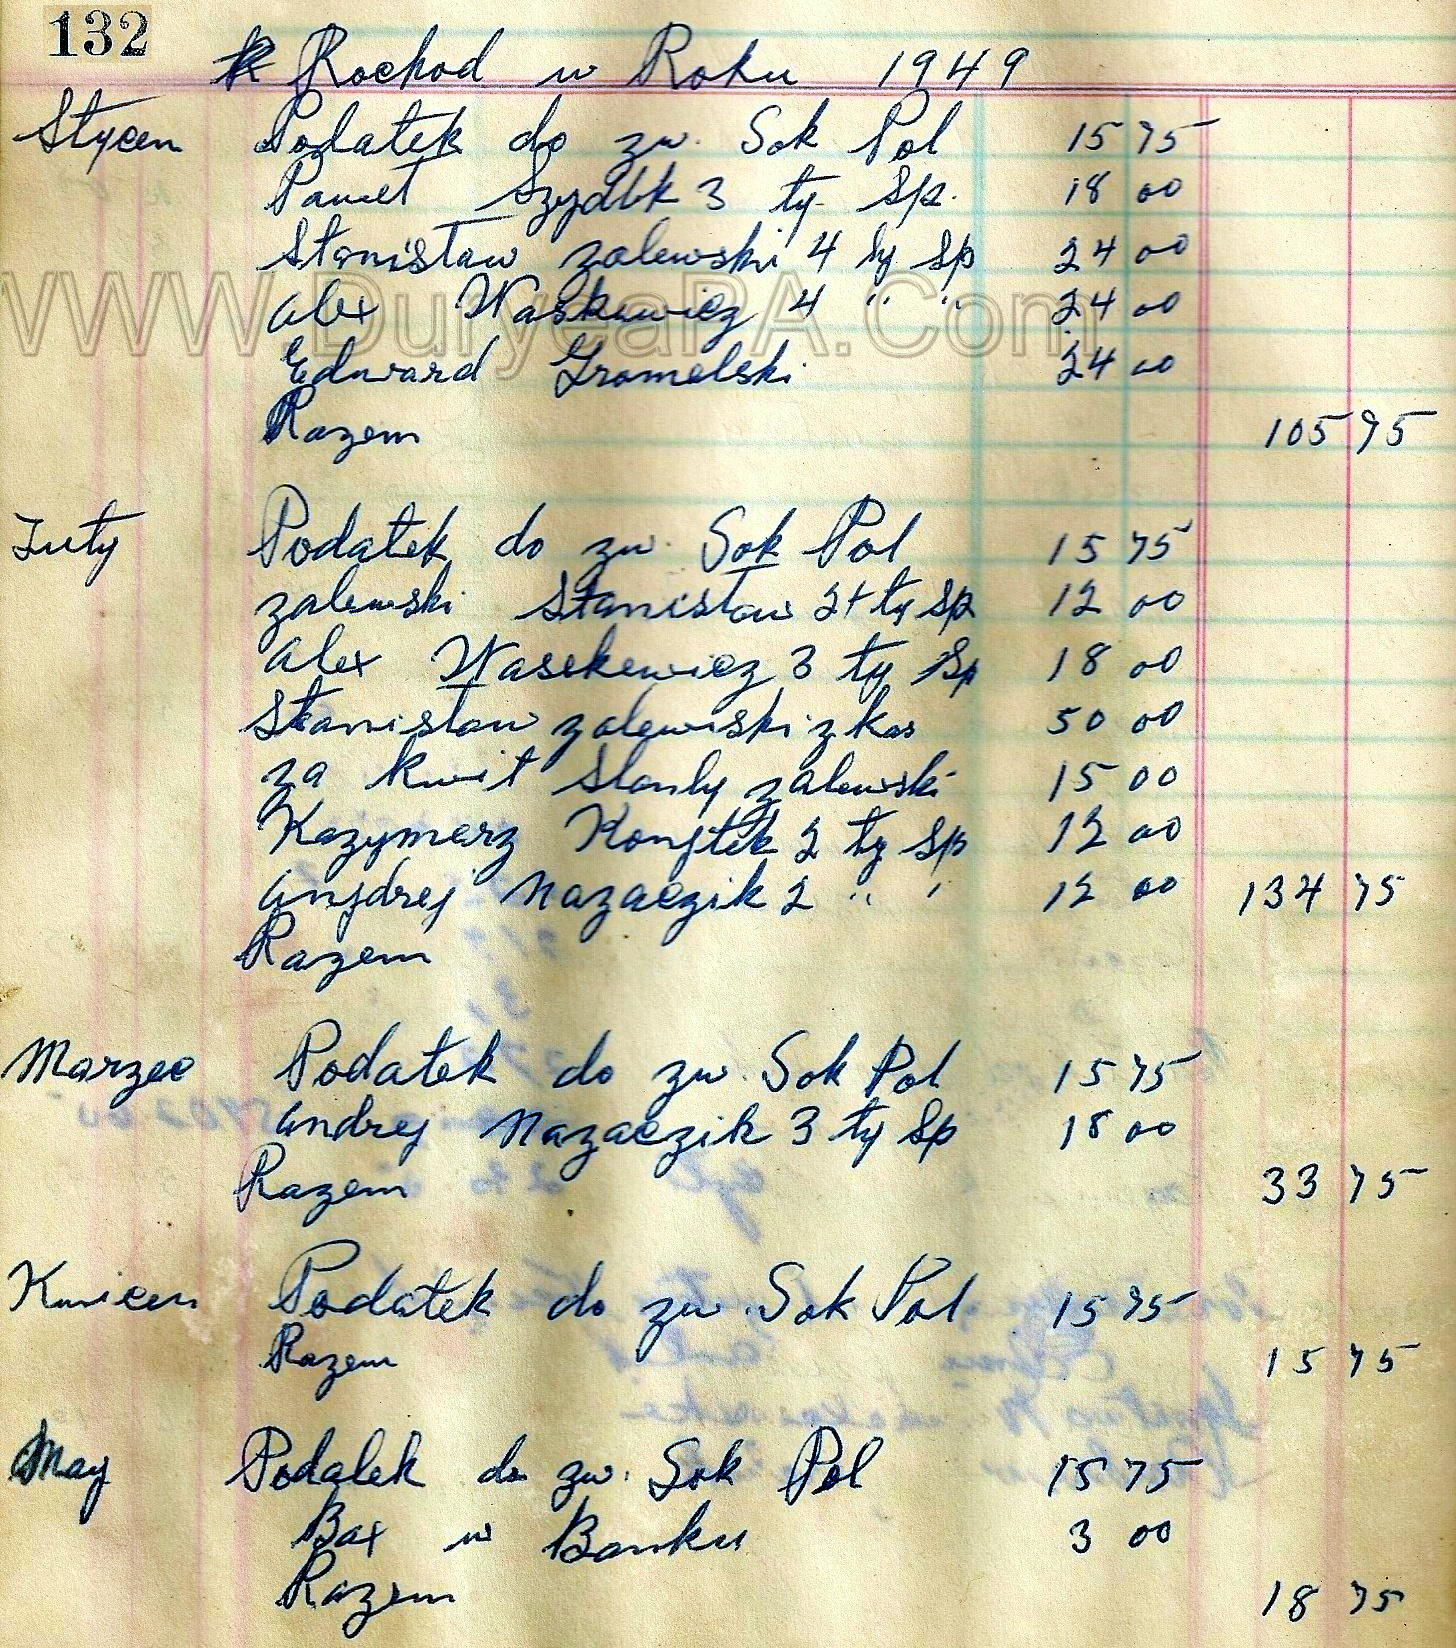 132
Rochod w Roku 1949
Stycen Podatek do zw. Sok Pol 15 75
Paweł Szydlk 3 ty Sp. 18 00
Stanisław Zalewski 4 ty Sp 24 00
Alex Waskewicz 4 " " 24 00
www.DuryeaPA.Com
Edward Gromelski 24 00
Razem 105 95
Luty Podatek do zw. Sok Pol 15 75
Zalewski Stanisław 2 ty Sp 12 00
Alex Wasekewicz 3 ty Sp 18 00
Stanisław Zalewiski z kas 50 00
za kwit Stanly Zalewski 15 00
Kazymerz 2 ty Sp 12 00
Andrej Nazaczik 2 " " 12 00 134 75
Razem
Marzec Podatek do zw. Sok Pol 15 75
Andrej Nazaczik 3 ty Sp 18 00
Razem 33 75
Kwicen Podatek do zw. Sok Pol 15 75
Razem 15 75
May Podatek do zw. Sok Pol 15 75
Bax w Banku 3 00
Razem 18 75